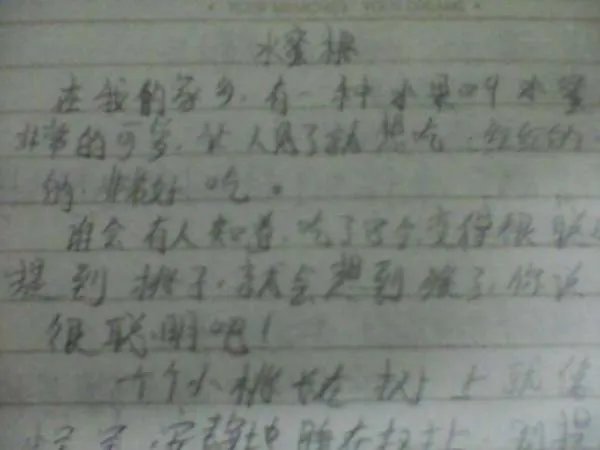 YOUR MEMORIES YOUR DREAMS
水蜜桃
在我的家乡,有一种水果叫水蜜
非常的可爱,让人见了就想吃,红红的
的,非常好吃。
谁会有人知道,吃了它会变得很聪
提到桃子,就会想到猴子,你说
很聪明吧!
个个小桃长在树上就像
安静地睡在树上